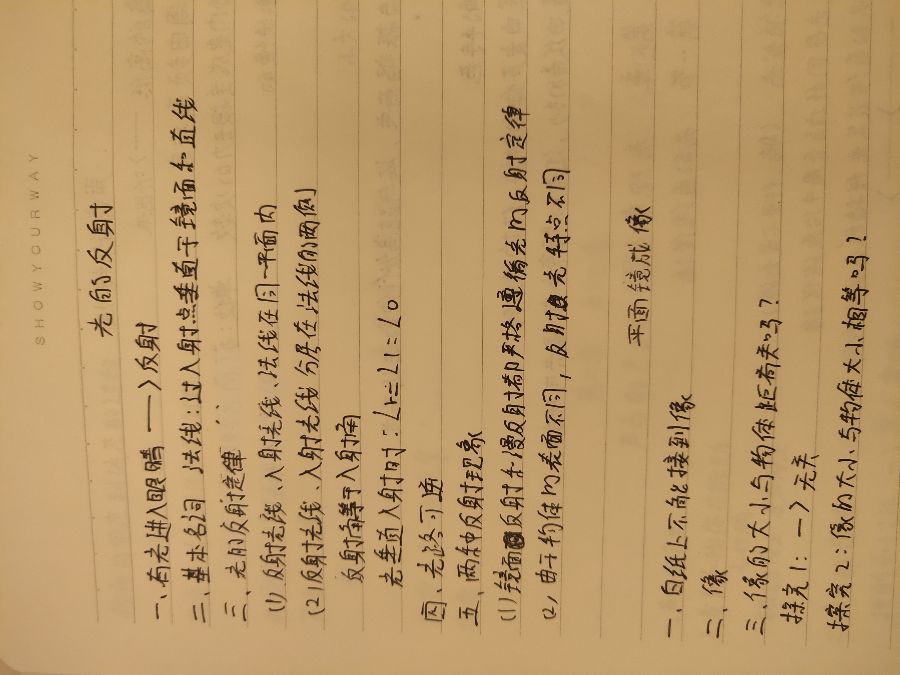 SHOWYOURWAY
光的反射
一、有光进入眼睛 ——>反射
二、基本名词 法线:过入射点垂直于镜面和直线
三、光的反射定律
(1)反射光线、入射光线、法线在同一平面内
(2)反射光线、入射光线分居在法线的两侧
反射角等于入射角
光垂直入射时:∠r=∠i=∠0
四、光路可逆
五、两种反射现象
(1)镜面反射和漫反射都严格遵循光的反射定律
(2)由于物体的表面不同,反射光特点不同
平面镜成像
一、白纸上不能接到像
二、像
三、像的大小与物体距有关吗?
探究1:—>无关
探究2:像的大小与物体大小相等吗?